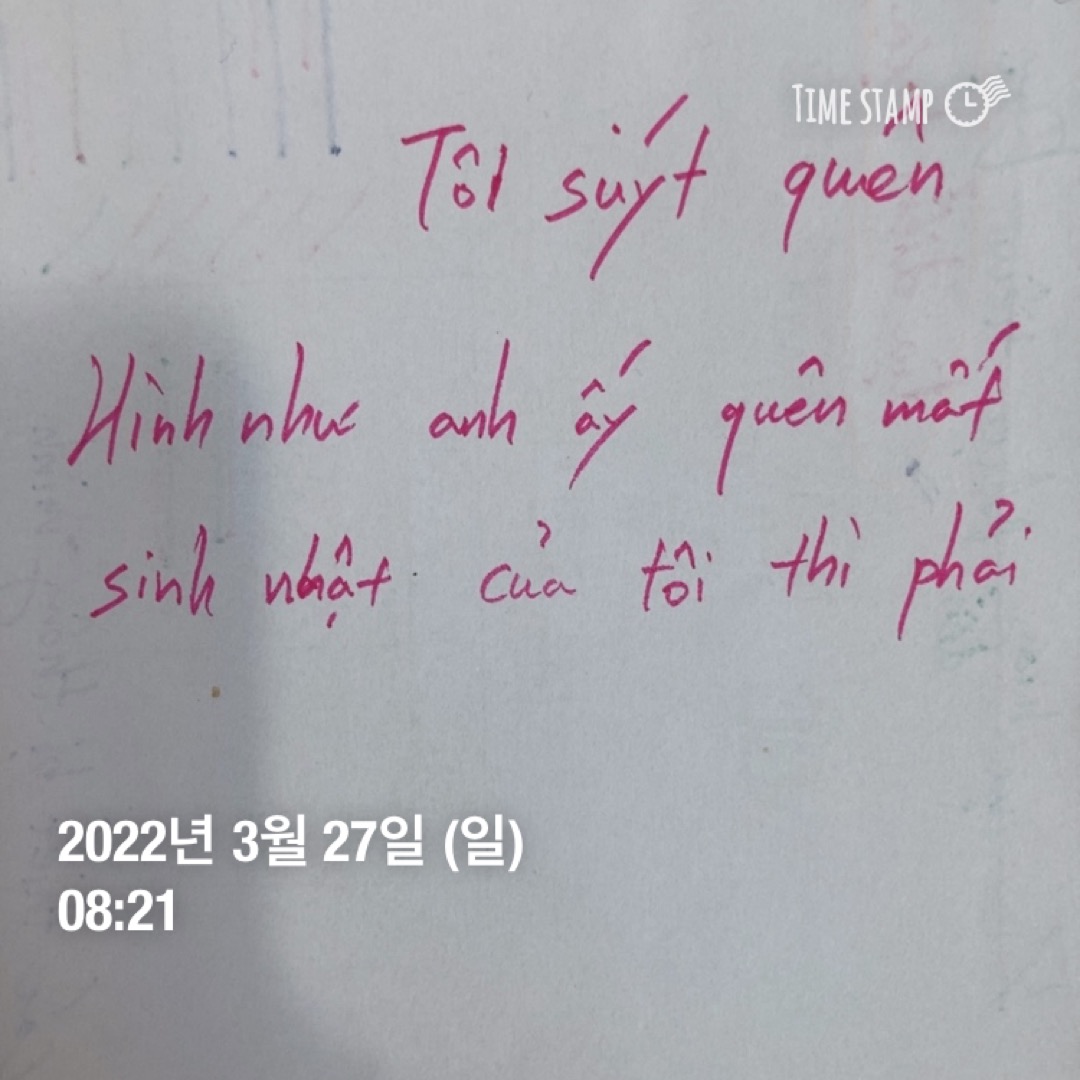 TIME STAMP
Tôi suýt quên
Hình như anh ấy quên mất
sinh nhật của tôi thì phải
2022년 3월 27일 (일)
08:21